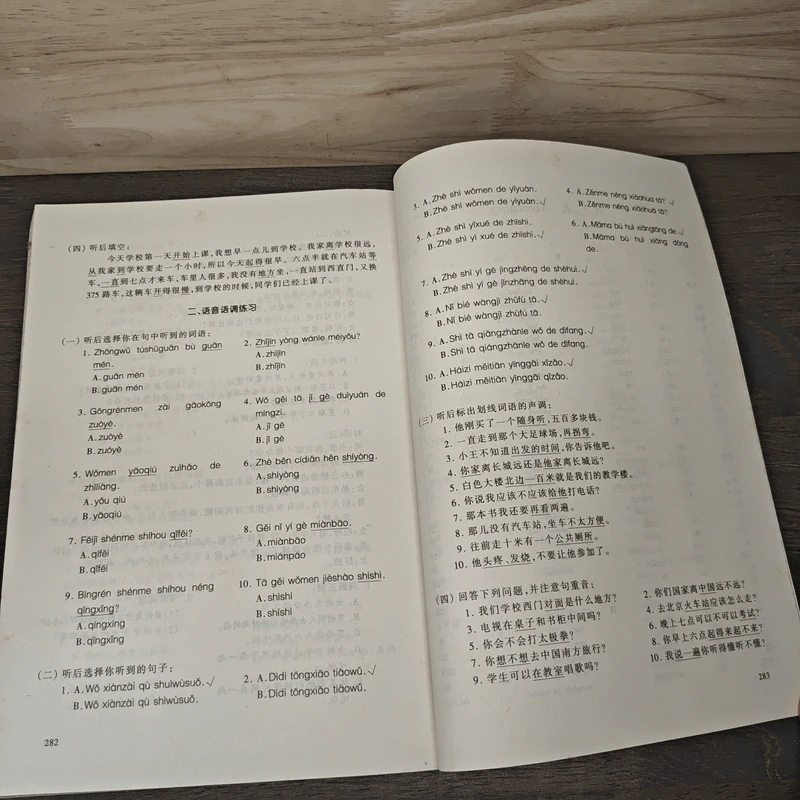 (四) 听后填空:
今天学校第一天开始上课,我想早一点儿到学校。我家离学校很远,
从我家到学校要走一个小时,所以今天起得很早。六点半就在汽车站等
车,一直到七点才来车,车里人很多,我没有地方坐,一直站到西直门,又换
375 路车,这辆车开得很慢,到学校的时候,同学们已经上课了。
二、语音语调练习
(一) 听后选择你在句中听到的词语:
1. Zhōngwǔ túshūguǎn bù guān
mén.
A. guān mén
B. guān mén
2. Zhǐjīn yòng wánle méiyǒu?
A. zhǐjīn
B. zhǐjīn
3. Gōngrénmen zài gāokōng
zuòyè.
A. zuòyè
B. zuóyè
4. Wǒ gěi tā jǐ gè dúlyuán de
míngzi.
A. jǐ gè
B. jǐ gè
5. Wǒmen yāoqiú zuìhǎo de
zhìliàng.
A. yǒu qiú
B. yāoqiú
6. Zhè běn cídiǎn hěn shíyòng.
A. shìyòng
B. shíyòng
7. Fēijī shénme shíhou qǐfēi?
A. qǐfēi
B. qīfēi
8. Gěi nǐ yí gè miànbāo.
A. miànbāo
B. miànpáo
9. Bìngrén shénme shíhou néng
qīngxǐng?
A. qíngxíng
B. qīngxǐng
10. Tā gěi wǒmen jièshào shíshì.
A. shìshí
B. shíshì
(二) 听后选择你听到的句子:
1. A. Wǒ xiànzài qù shuìwùsuǒ. √
B. Wǒ xiànzài qù shìwùsuǒ.
2. A. Dìdi tōngxiāo tiàowǔ. √
B. Dìdi tóngxiāo tiàowǔ.
282
3. A. Zhè shì wǒmen de yīyuàn.
B. Zhè shì wǒmen de yìyuàn. √
4. A. Zěnme néng xiàohua tā? √
B. Zěnme néng xiāohuà tā?
5. A. Zhè shì yīxué de zhīshi.
B. Zhè shì yì xué de zhīshi. √
6. A. Māma bú huì xiǎngtōng de. √
B. Māma bú huì xiǎng dòng
de.
7. A. Zhè shì yí gè jìngzhēng de shèhuì. √
B. Zhè shì yí gè jǐnzhāng de shèhuì.
8. A. Nǐ bié wàngjì zhùfú tā. √
B. Nǐ bié wàngjì zhǔfù tā.
9. A. Shì tā qiángzhànle wǒ de dìfang. √
B. Shì tā qiǎngzhànle wǒ de dìfang.
10. A. Háizi měitiān yīnggāi xǐzǎo. √
B. Háizi měitiān yīnggāi qǐzǎo.
(三) 听后标出划线词语的声调:
1. 他刚买了一个随身听,五百多块钱。
2. 一直走到那个大足球场,再拐弯。
3. 小王不知道出发的时间,你告诉他吧。
4. 你家离长城远还是他家离长城远?
5. 白色大楼北边一百米就是我们的教学楼。
6. 你说我应该不应该给他打电话?
7. 那本书我还要再看两遍。
8. 那儿没有汽车站,坐车不太方便。
9. 往前走十米有一个公共厕所。
10. 他头疼、发烧,不要让他参加了。
(四) 回答下列问题,并注意句重音:
1. 我们学校西门对面是什么地方?
2. 你们国家离中国远不远?
3. 电视在桌子和书柜中间吗?
4. 去北京火车站应该怎么走?
5. 你会不会打太极拳?
6. 晚上七点可以不可以考试?
7. 你想不想去中国南方旅行?
8. 你早上六点起得来起不来?
9. 学生可以在教室唱歌吗?
10. 我说一遍你听得懂听不懂?
283